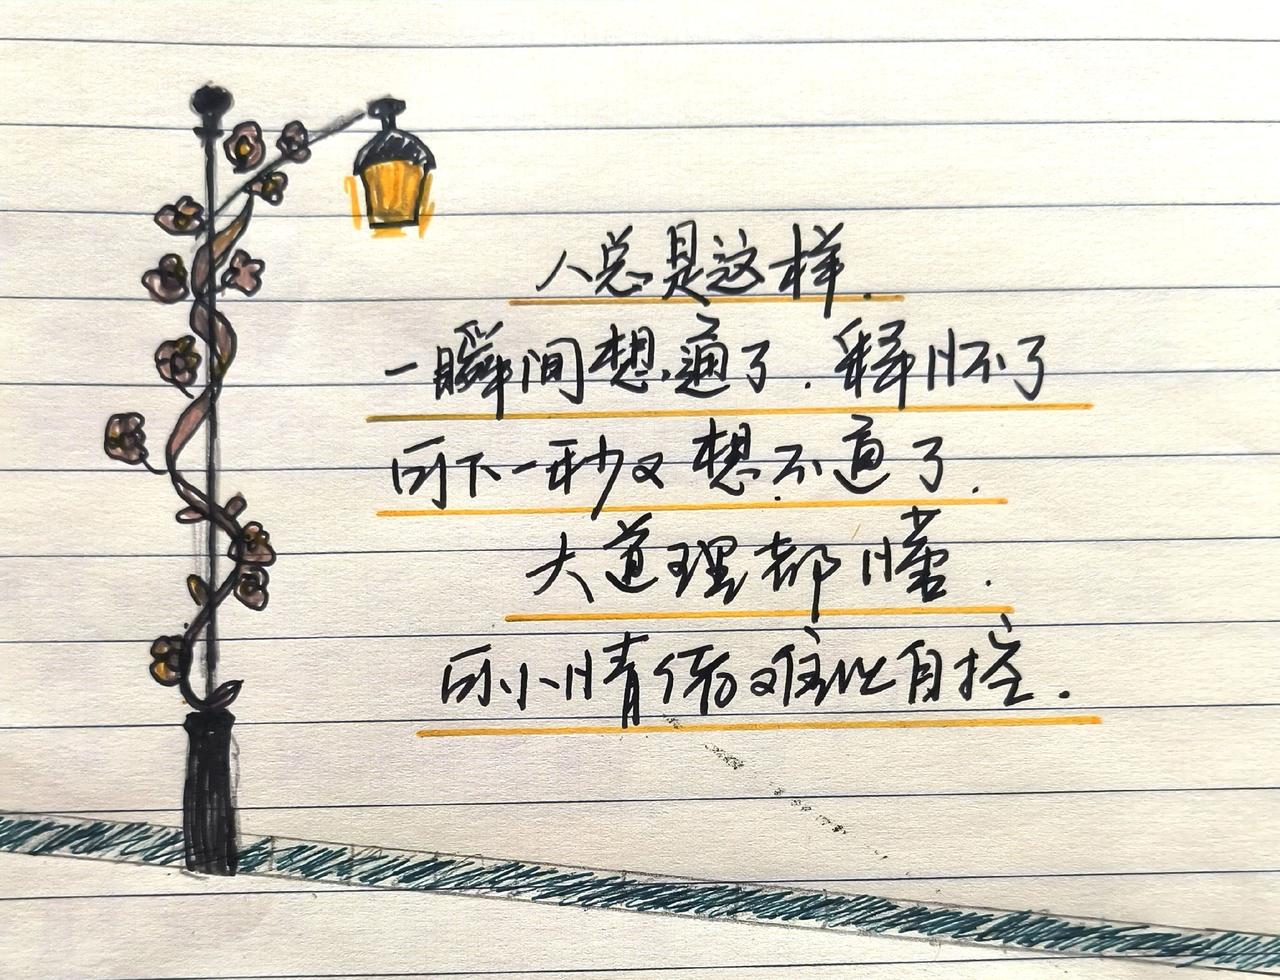 人总是这样.
一瞬间想通了.释怀了
可下一秒又想不通了.
大道理都懂.
可小情绪难以自控.